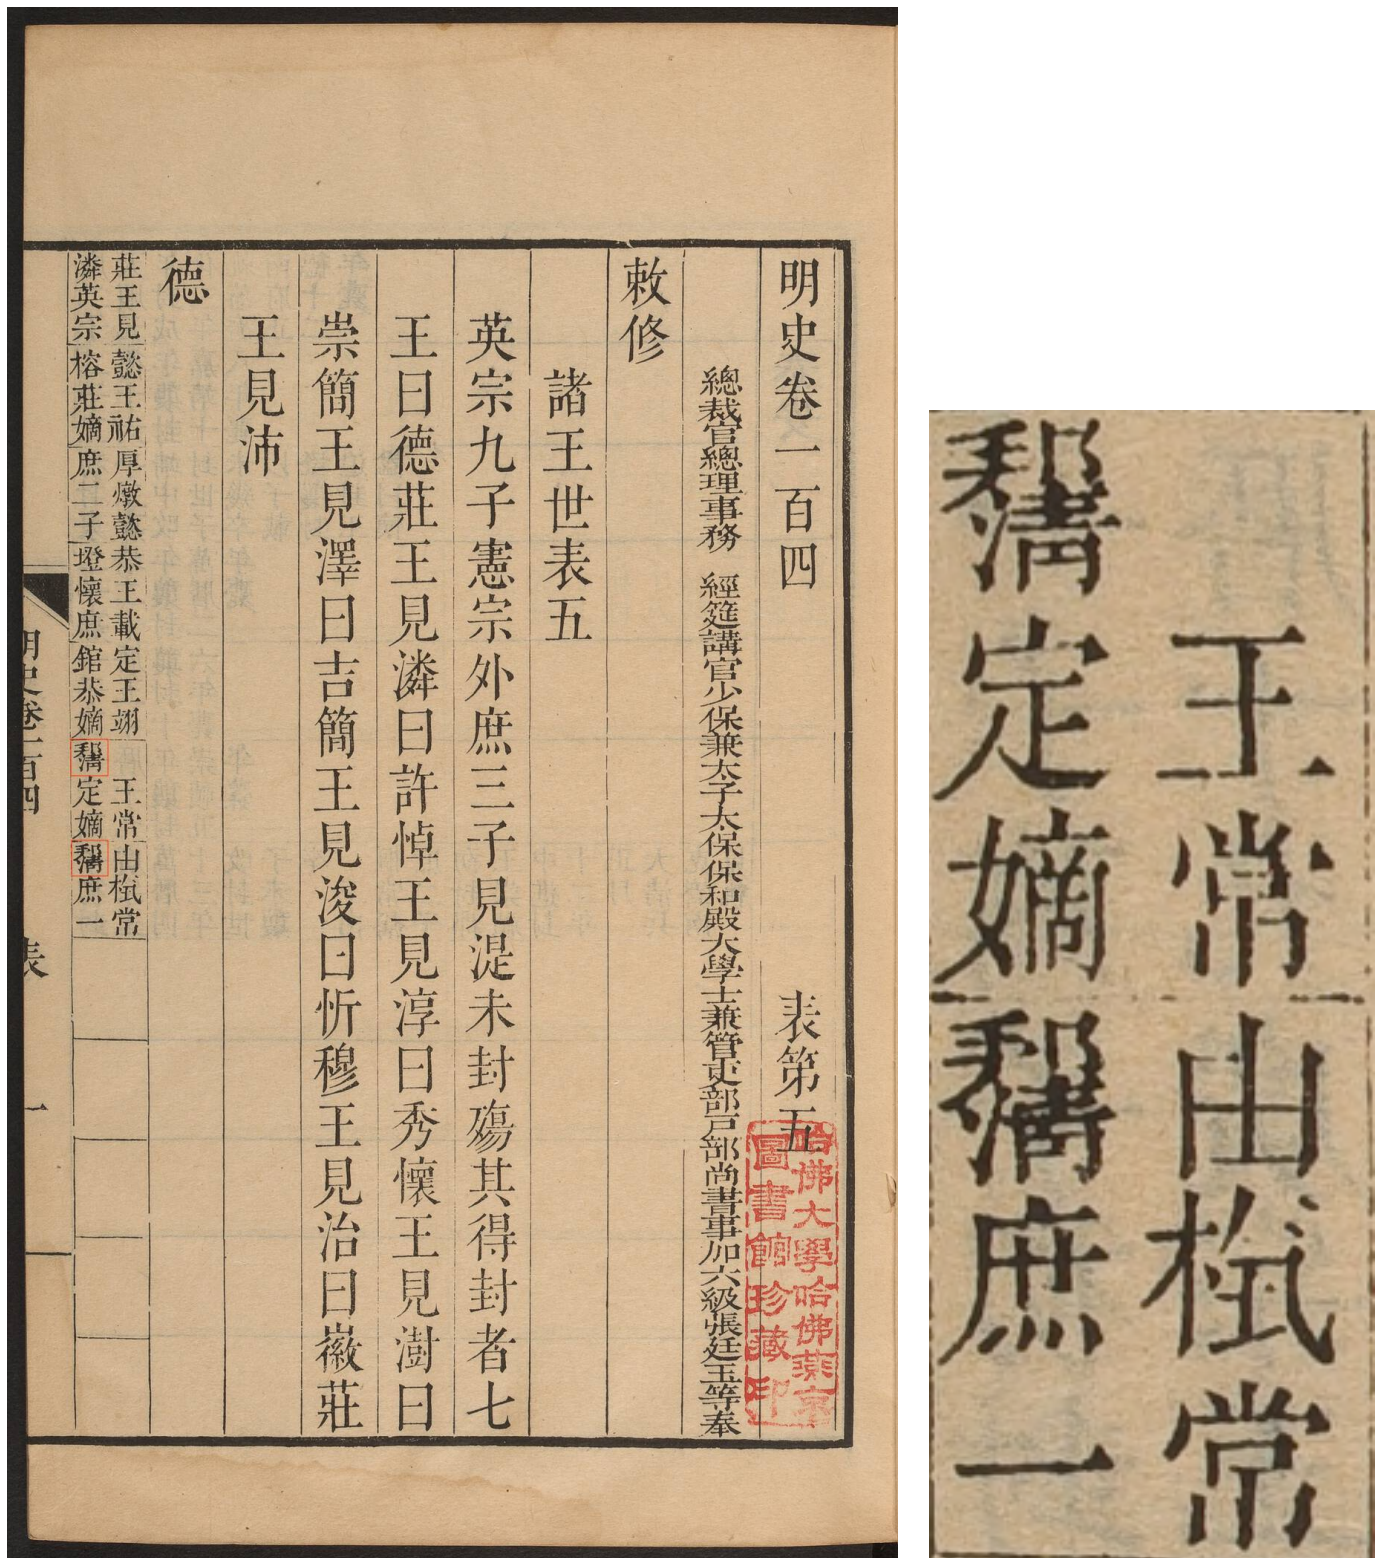 明史卷一百四　表第五
總裁官總理事務　經筵講官少保兼太子太保保和殿大學士兼管吏部戶部尚書事加六級張廷玉等奉
敕修
諸王世表五
英宗九子憲宗外庶三子見湜未封殤其得封者七
王曰德莊王見潾曰許悼王見淳曰秀懷王見澍曰
崇簡王見澤曰吉簡王見浚曰忻穆王見治曰徽莊
王見沛
德
莊王見
潾英宗
懿王祐
榕莊嫡
厚燉懿
庶一子
恭王載
墱懷庶
定王翊
錧恭嫡
王常
定嫡
由常
庶一
明史卷一百四　表　一
哈佛大學哈佛燕京
圖書館珍藏印
王常
定嫡
由常
庶一